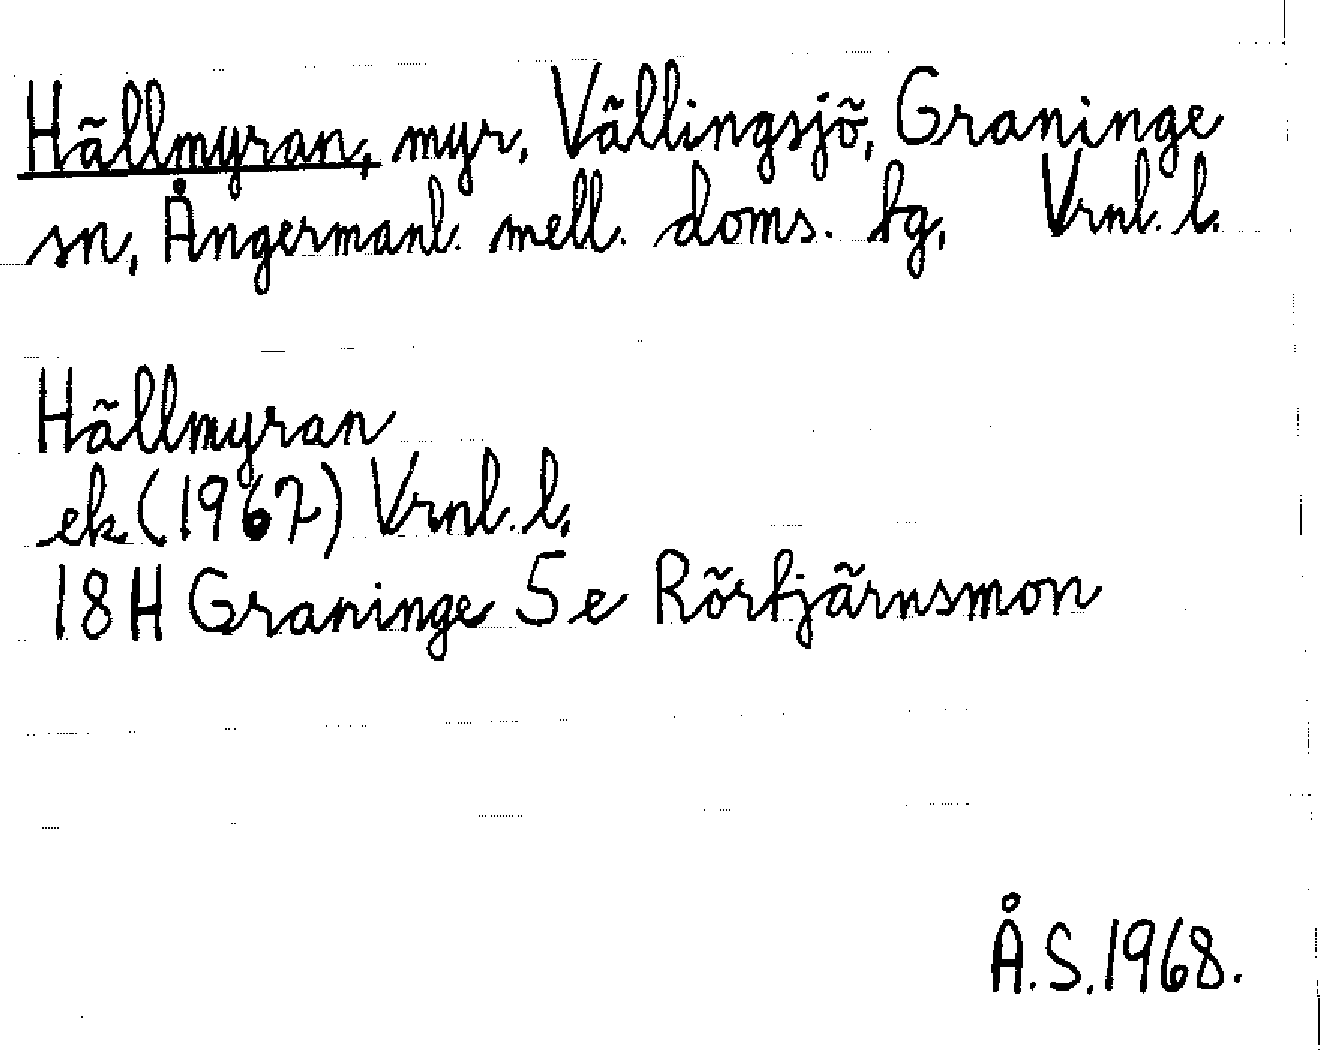 Hällmyran, myr, Vällingsjö, Graninge
sn, Ångermanl. mell. doms. tg, Vrnl. l.
Hällmyran
ek (1967) Vrnl. l.
18H Graninge 5e Rörtjärnsmon
Å.S. 1968.